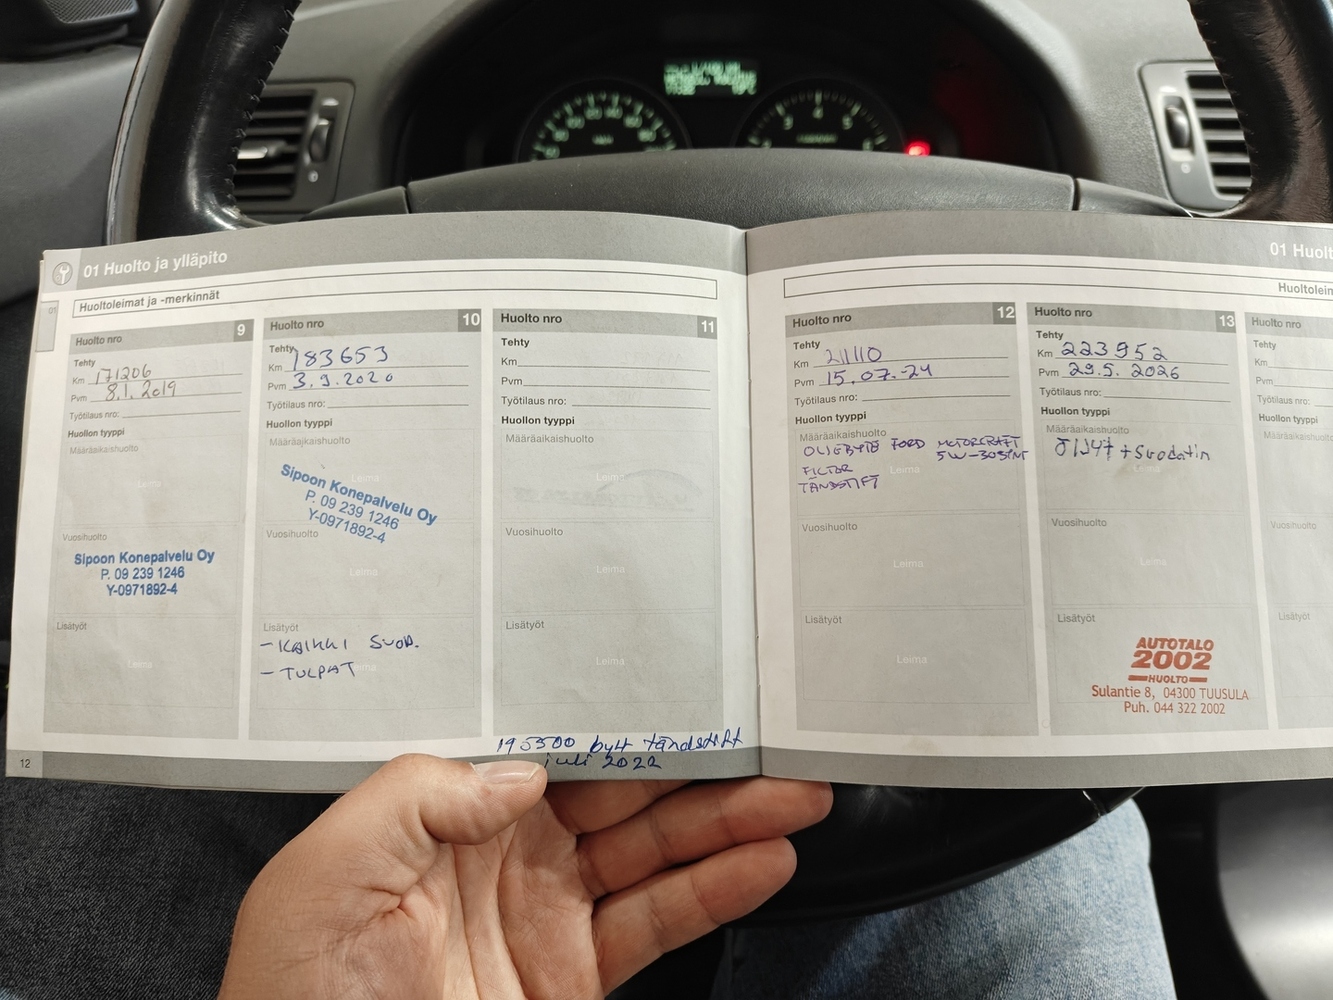 01 Huolto ja ylläpito
Huoltoleimat ja -merkinnät
01
Huolto nro 9
Tehty
Km 171206
Pvm 8.1.2019
Työtilaus nro:
Huollon tyyppi
Määräaikaishuolto
Leima
Vuosihuolto
Sipoon Konepalvelu Oy
P. 09 239 1246
Y-0971892-4
Lisätyöt
Leima
12
Huolto nro 10
Tehty
Km 183653
Pvm 3.9.2020
Työtilaus nro:
Huollon tyyppi
Määräaikaishuolto
Sipoon Konepalvelu Oy
P. 09 239 1246
Y-0971892-4
Vuosihuolto
Leima
Lisätyöt
- KAIKKI SUOD.
- TULPAT
Leima
Huolto nro 11
Tehty
Km
Pvm
Työtilaus nro:
Huollon tyyppi
Määräaikaishuolto
Leima
Vuosihuolto
Leima
Lisätyöt
Leima
195500 bytt tändstift
juli 2022
01 Huolt
Huoltolein
Huolto nro 12
Tehty
Km 211110
Pvm 15.07.-24
Työtilaus nro:
Huollon tyyppi
Määräaikaishuolto
OLJEBYTE FORD MOTORCRAFT
5W-30
Leima
FILTER
TÄNDSTIFT
Vuosihuolto
Leima
Lisätyöt
Leima
Huolto nro 13
Tehty
Km 223952
Pvm 29.5.2026
Työtilaus nro:
Huollon tyyppi
Määräaikaishuolto
ÖLJYT + Suodatin
Leima
Vuosihuolto
Leima
Lisätyöt
AUTOTALO
2002
HUOLTO
Sulantie 8, 04300 TUUSULA
Puh. 044 322 2002
Huolto nro
Tehty
Km
Pvm
Työtilaus nro
Huollon tyyppi
Määräaikaishu
Vuosihuolto
Lisätyöt